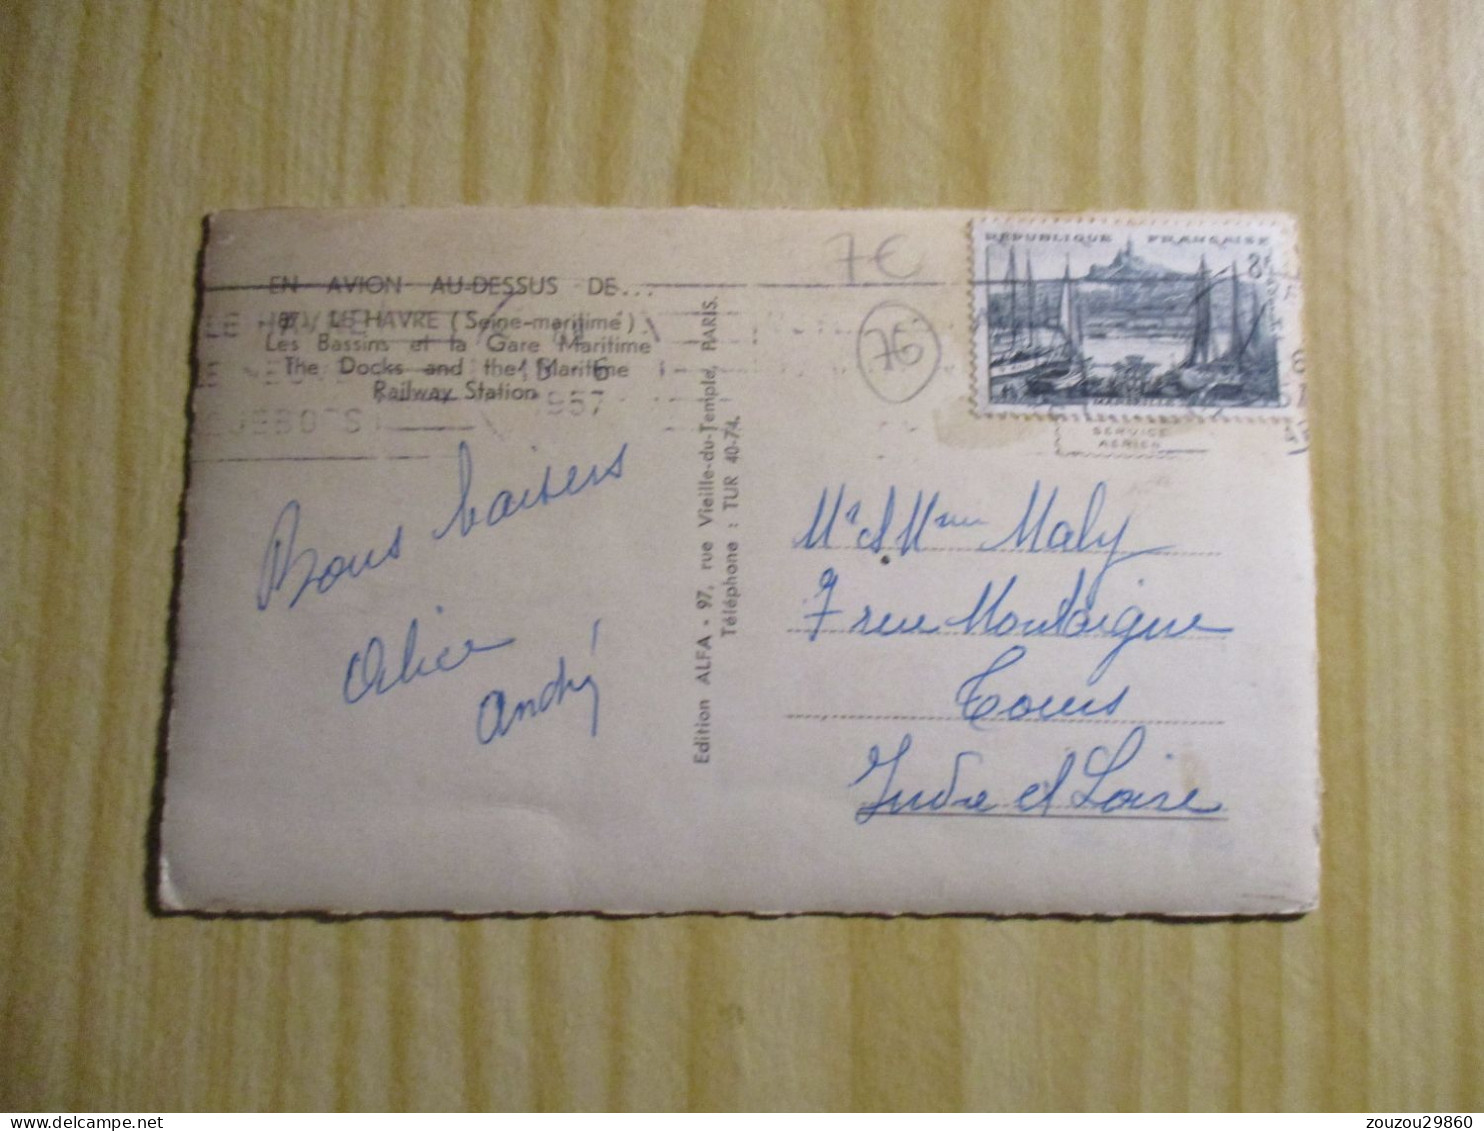 7€
76
RÉPUBLIQUE FRANÇAISE
8F
MARSEILLE
EN AVION AU-DESSUS DE...
LE HAVRE (Seine-maritime)
Les Bassins et la Gare Maritime
The Docks and the Maritime
Railway Station
SERVICE
AÉRIEN
Bons baisers
Alice
André
Edition ALFA - 97, rue Vieille-du-Temple, PARIS.
Téléphone : TUR 40-74.
Mr & Mme Maly
7 rue Montaigne
Tours
Indre et Loire
zouzou29860